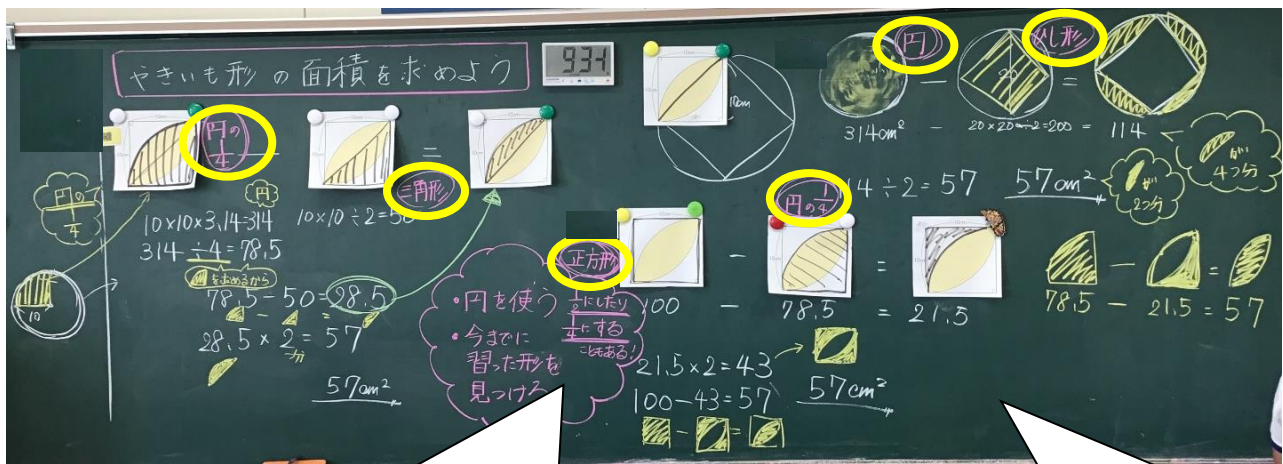 やきいも形の面積を求めよう
9:34
円の
1/4
円の
1/4
10
円
10×10×3.14=314
314÷4=78.5
を求めるから
78.5-50=28.5
28.5×2=57
57cm²
10×10÷2=50
=
三角形
・円を使う
1/2にしたり
1/4にする
こともある!
・今までに
習った形を
見つける
10cm
円
ひし形
20
-
=
314cm²
-
20×20÷2=200
=
114
が
4つ分
114÷2=57
57cm²
が
2つ分
正方形
円の1/4
-
=
100
-
78.5
=
21.5
21.5×2=43
100-43=57
57cm²
-
=
-
=
78.5
-
21.5
=
57